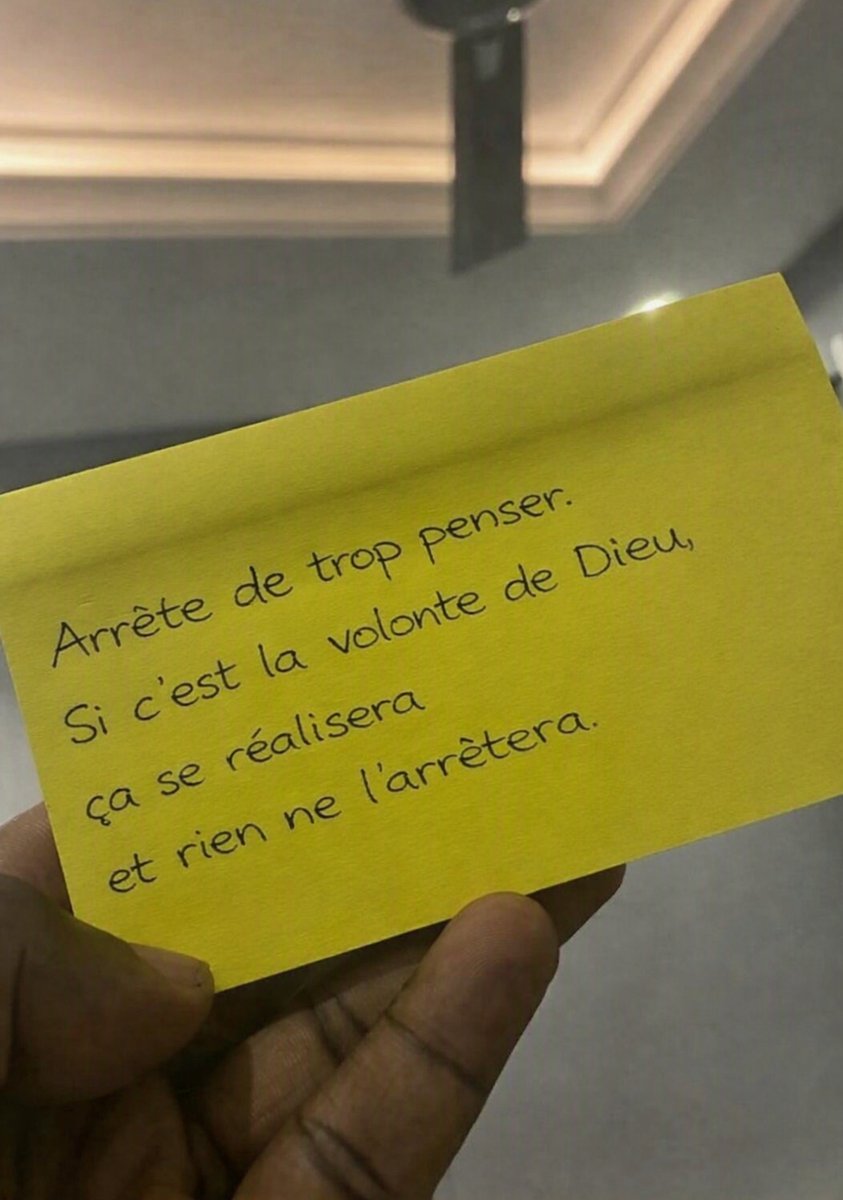 Arrête de trop penser.
Si c'est la volonte de Dieu,
ça se réalisera
et rien ne l'arrêtera.